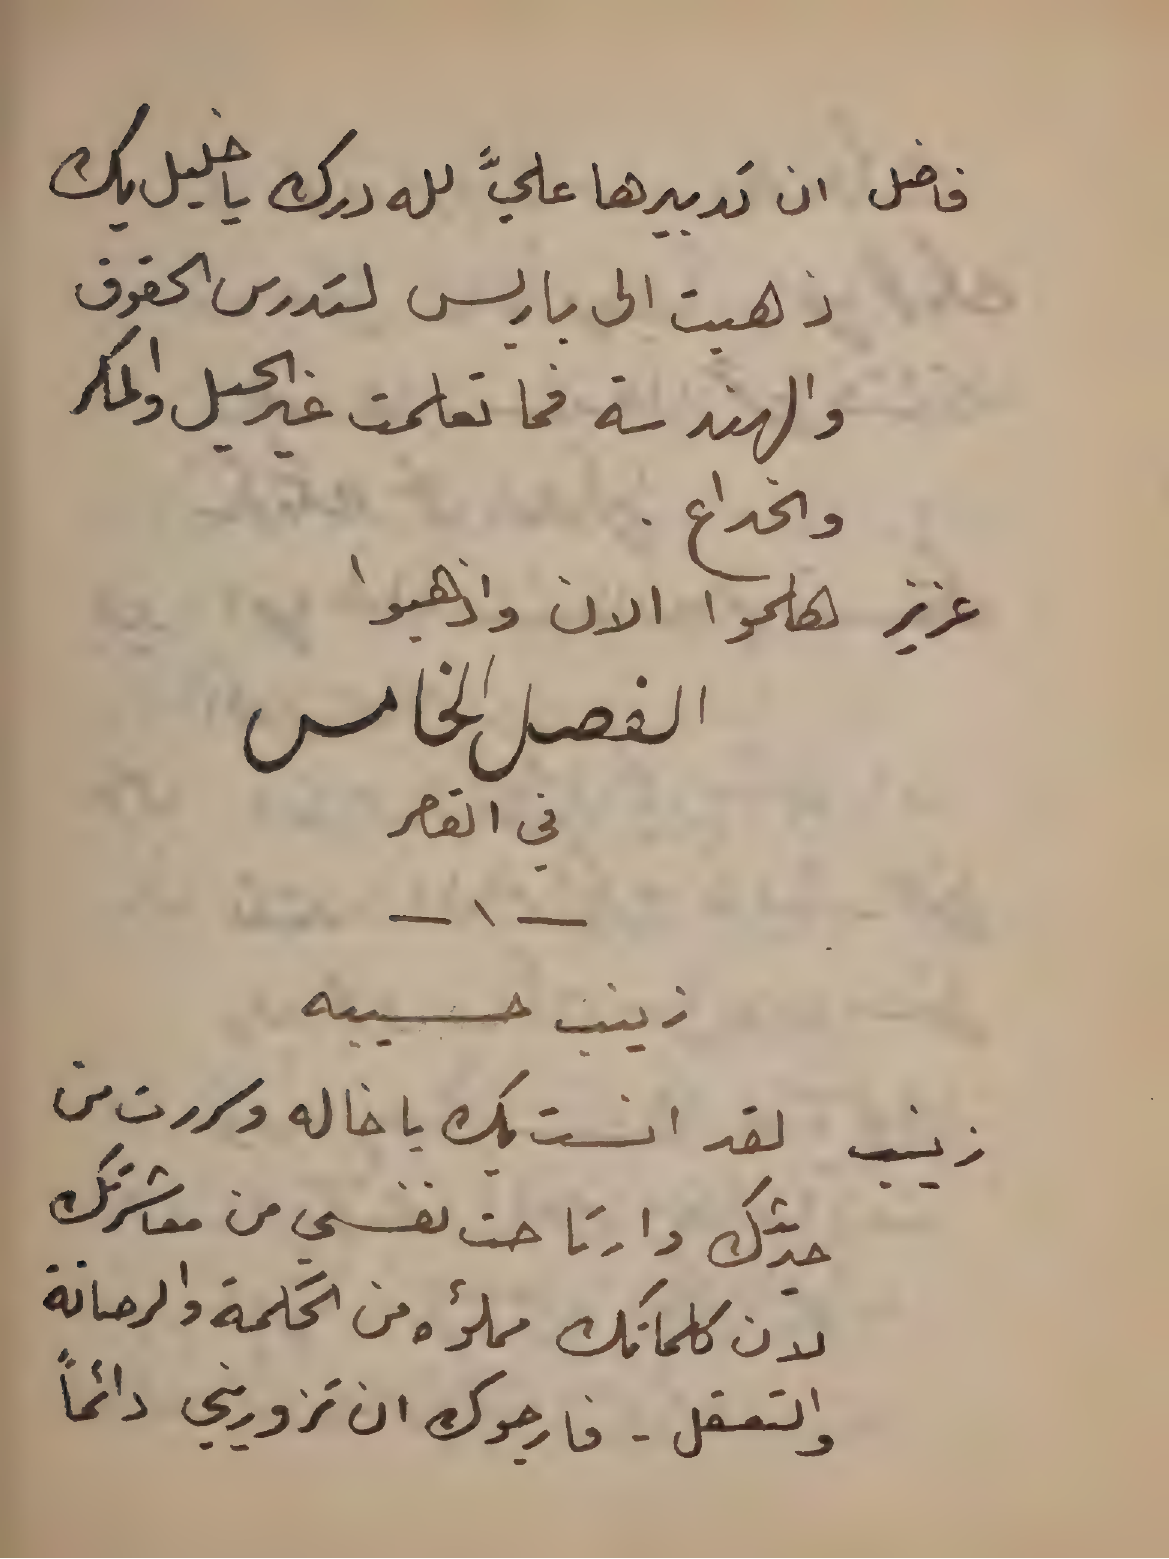 فاضل ان تدبيرها عليَّ لله درك يا خليل بك
ذهبت الى باريس لتدرس الحقوق
والهندسة فما تعلمت غير الحيل والمكر
والخداع .
عزيز هلموا الان واذهبوا
الفصل الخامس
في القصر
— ١ —
زينب حسيبه
زينب لقد انست بك يا خاله وسررت من
حديثك وارتاحت نفسي من معاشرتك
لان كلماتك مملؤه من الحكمة والرصانة
والتعقل - فارجوك ان تزوريني دائماً